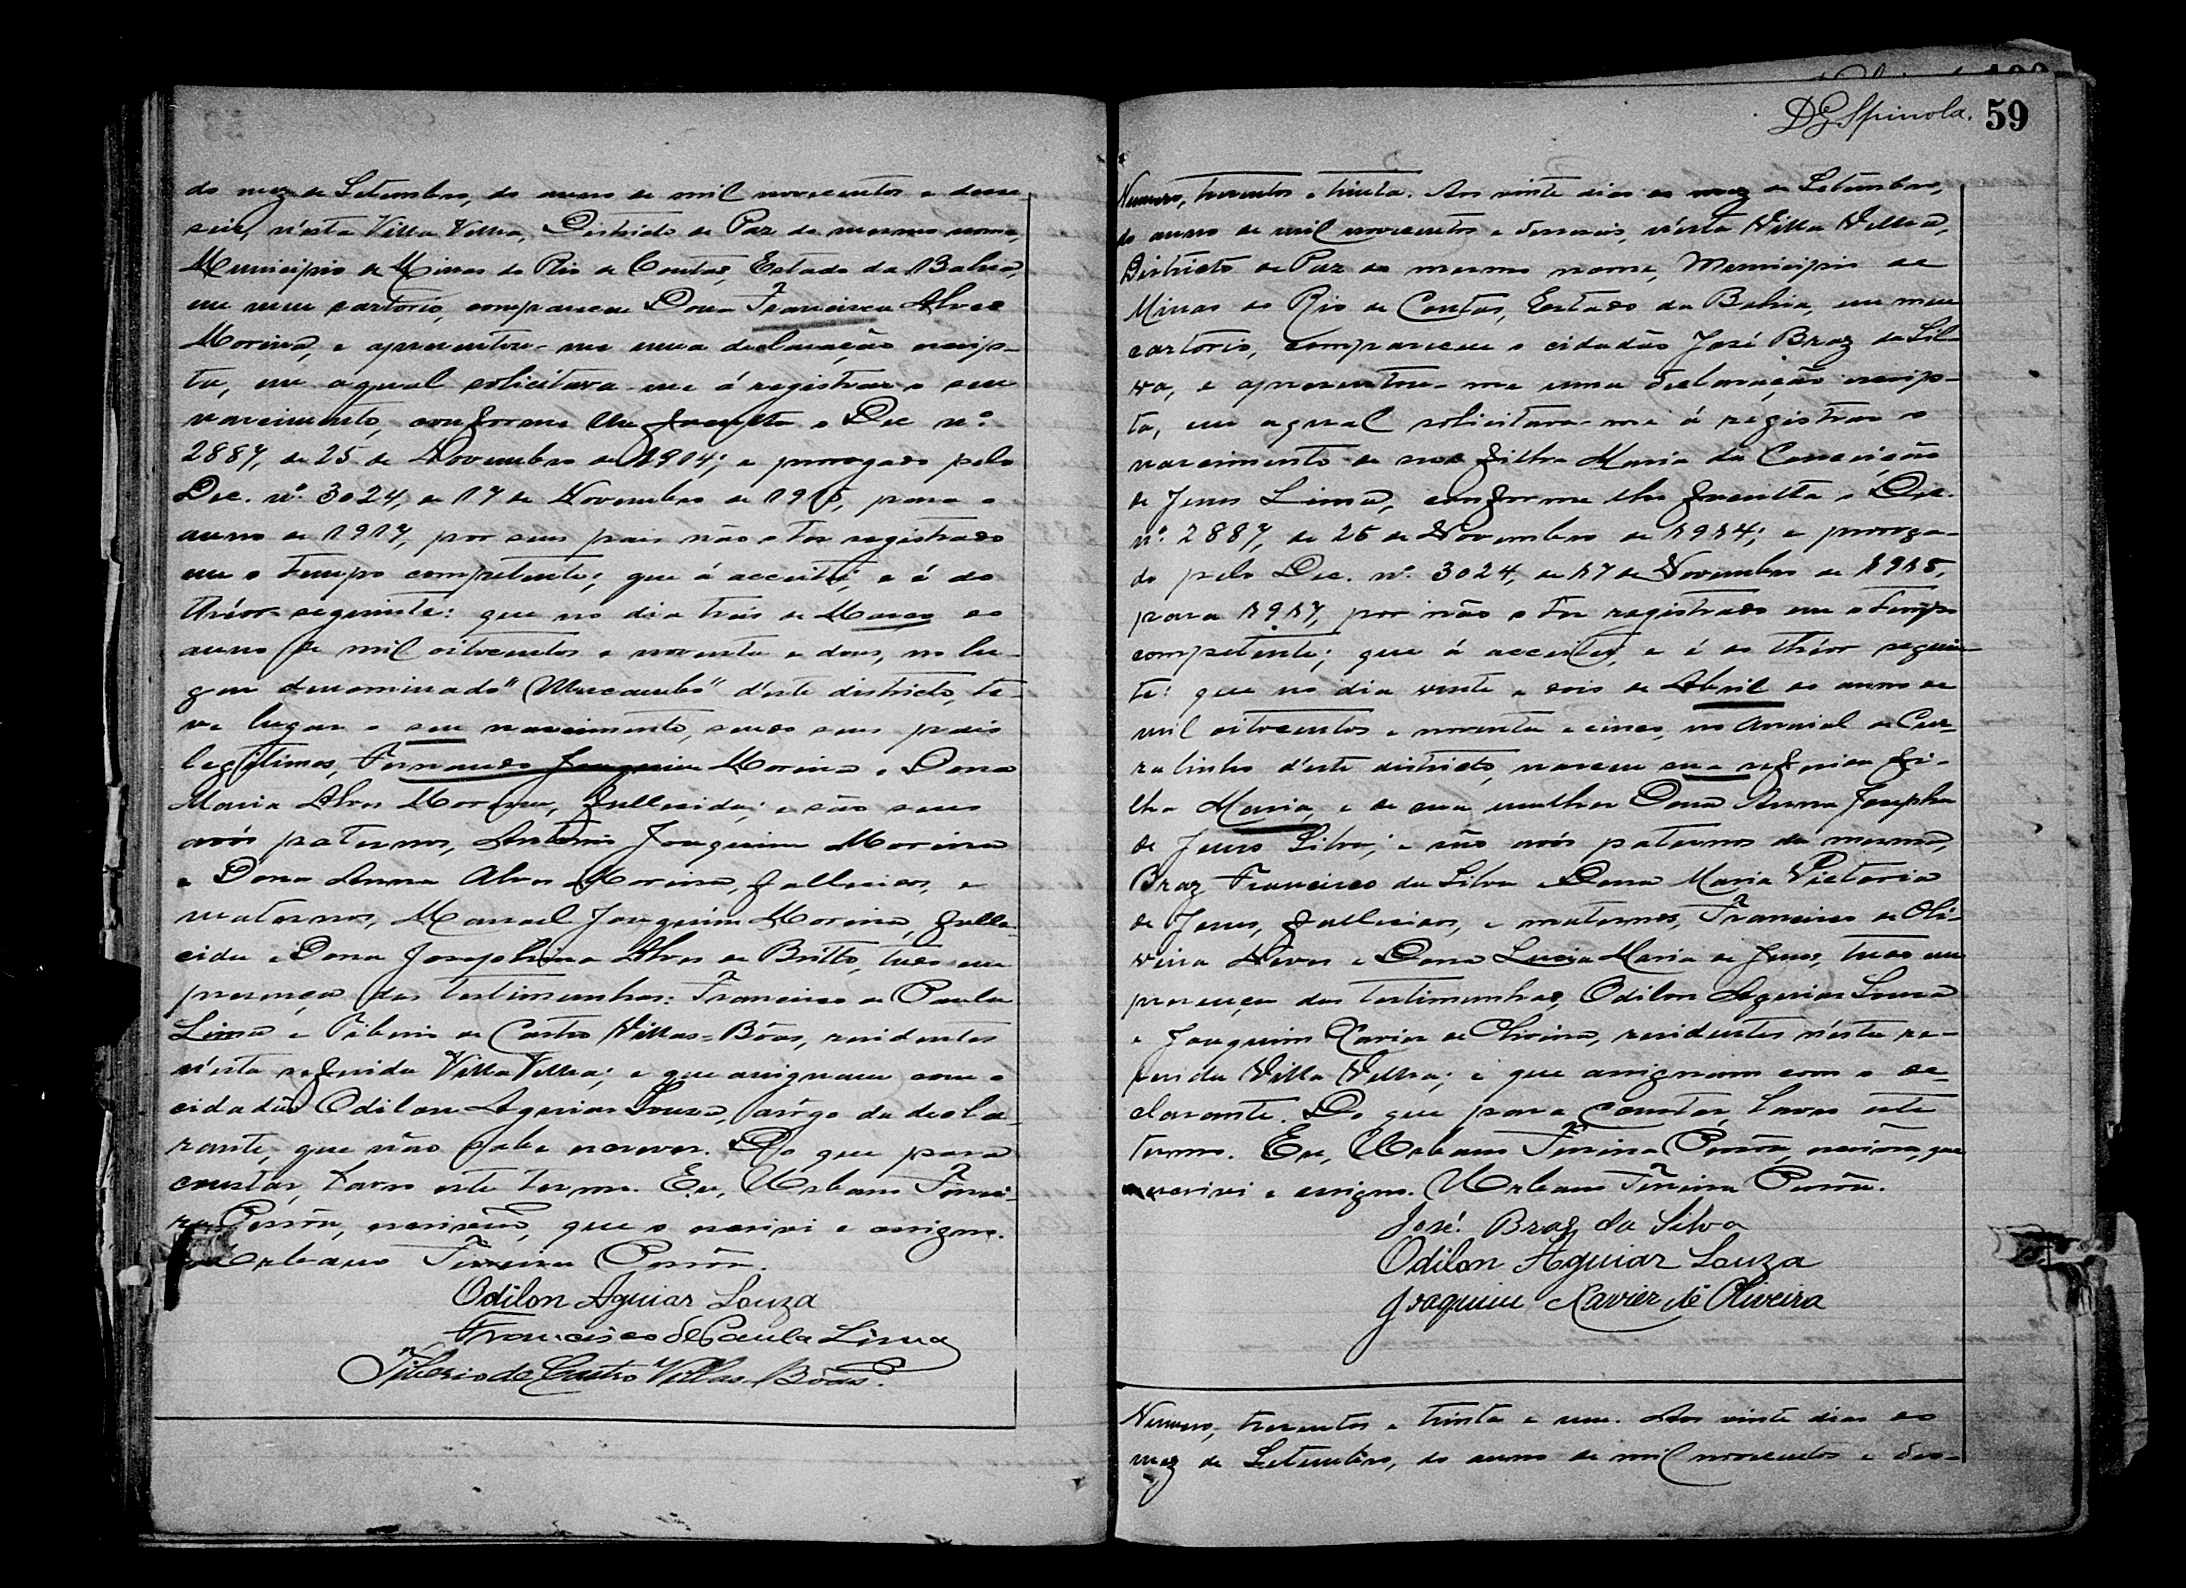 do mez de Setembro, do anno de mil novecentos e deze-
seis, n'esta Villa Velha, Districto de Paz do mesmo nome,
Municipio de Minas do Rio de Contas, Estado da Bahia,
em meu cartorio, compareceu Dona Francisca Alves
Moreira, e apresentou-me uma declaração escrip-
ta, em a qual solicitava-me á registrar o seu
nascimento, conforme lhe faculta o Dec. nº
2887, de 25 de Novembro de 1914; e prorogado pelo
Dec. nº 3024, de 17 de Novembro de 1915, para o
anno de 1917, por seus pais não o ter registrado
em o tempo competente; que á acceitei, e é do
théor seguinte: que no dia trêis de Março do
anno de mil oitocentos e noventa e dous, no lu-
gar denominado "Mucambo" d'este districto, te-
ve lugar o seu nascimento, sendo seus pais
legitimos, Fernando Joaquim Moreira e Dona
Maria Alves Moreira, fallecida; e são seus
avós paternos, Antonio Joaquim Moreira
e Dona Anna Alves Moreira, fallecidos, e
maternos, Manoel Joaquim Moreira, falle-
cido e Dona Josephina Alves de Britto, tudo em
presença das testimunhas: Francisco de Paula
Lima e Tiberio de Castro Villas-Bôas, residentes
n'esta referida Villa Velha; e que assignam com o
cidadão Odilon Aguiar Souza, a rôgo da decla-
rante, que não sabe escrever. Do que para
constar, lavro este termo. Eu, Urbano Ferrei-
ra Pessôa, escrivão, que o escrivi e assigno.
Urbano Ferreira Pessôa.
Odilon Aguiar Souza
Francisco de Paula Lima
Tiberio de Castro Villas-Bôas.
D G Spinola. 59
Numero, trezentos e trinta. Aos vinte dias do mez de Setembro,
do anno de mil novecentos e deseseis, n'esta Villa Velha,
Districto de Paz do mesmo nome, Municipio de
Minas do Rio de Contas, Estado da Bahia, em meu
cartorio, compareceu o cidadão José Braz da Sil-
va, e apresentou-me uma declaração escrip-
ta, em a qual solicitava-me á registrar o
nascimento de sua filha Maria da Conceição
de Jesus Lima, conforme lhe faculta o Dec.
nº 2887, de 25 de Novembro de 1914; e proroga-
do pelo Dec. nº 3024, de 17 de Novembro de 1915,
para 1917, por não o ter registrado em o tempo
competente; que á acceitei, e é do théor seguin-
te: que no dia vinte e dois de Abril do anno de
mil oitocentos e noventa e cinco, no Arraial de Cur-
ralinho d'este districto, nasceu sua referida fi-
lha Maria, e de sua mulher Dona Anna Josepha
de Jesus Silva; e são avós paternos da mesma,
Braz Francisco da Silva e Dona Maria Victoria
de Jesus, fallecidos, e maternos, Francisco de Oli-
veira Neves e Dona Lucia Maria de Jesus, tudo em
presença das testimunhas, Odilon Aguiar Souza
e Joaquim Xavier de Oliveira, residentes n'esta re-
ferida Villa Velha; e que assignam com o de-
clarante. Do que para constar, lavro este
termo. Eu, Urbano Ferreira Pessôa, escrivão, que
o escrivi e assigno. Urbano Ferreira Pessôa.
José Braz da Silva
Odilon Aguiar Souza
Joaquim Xavier de Oliveira
Numero, trezentos e trinta e um. Aos vinte dias do
mez de Setembro, do anno de mil novecentos e des-